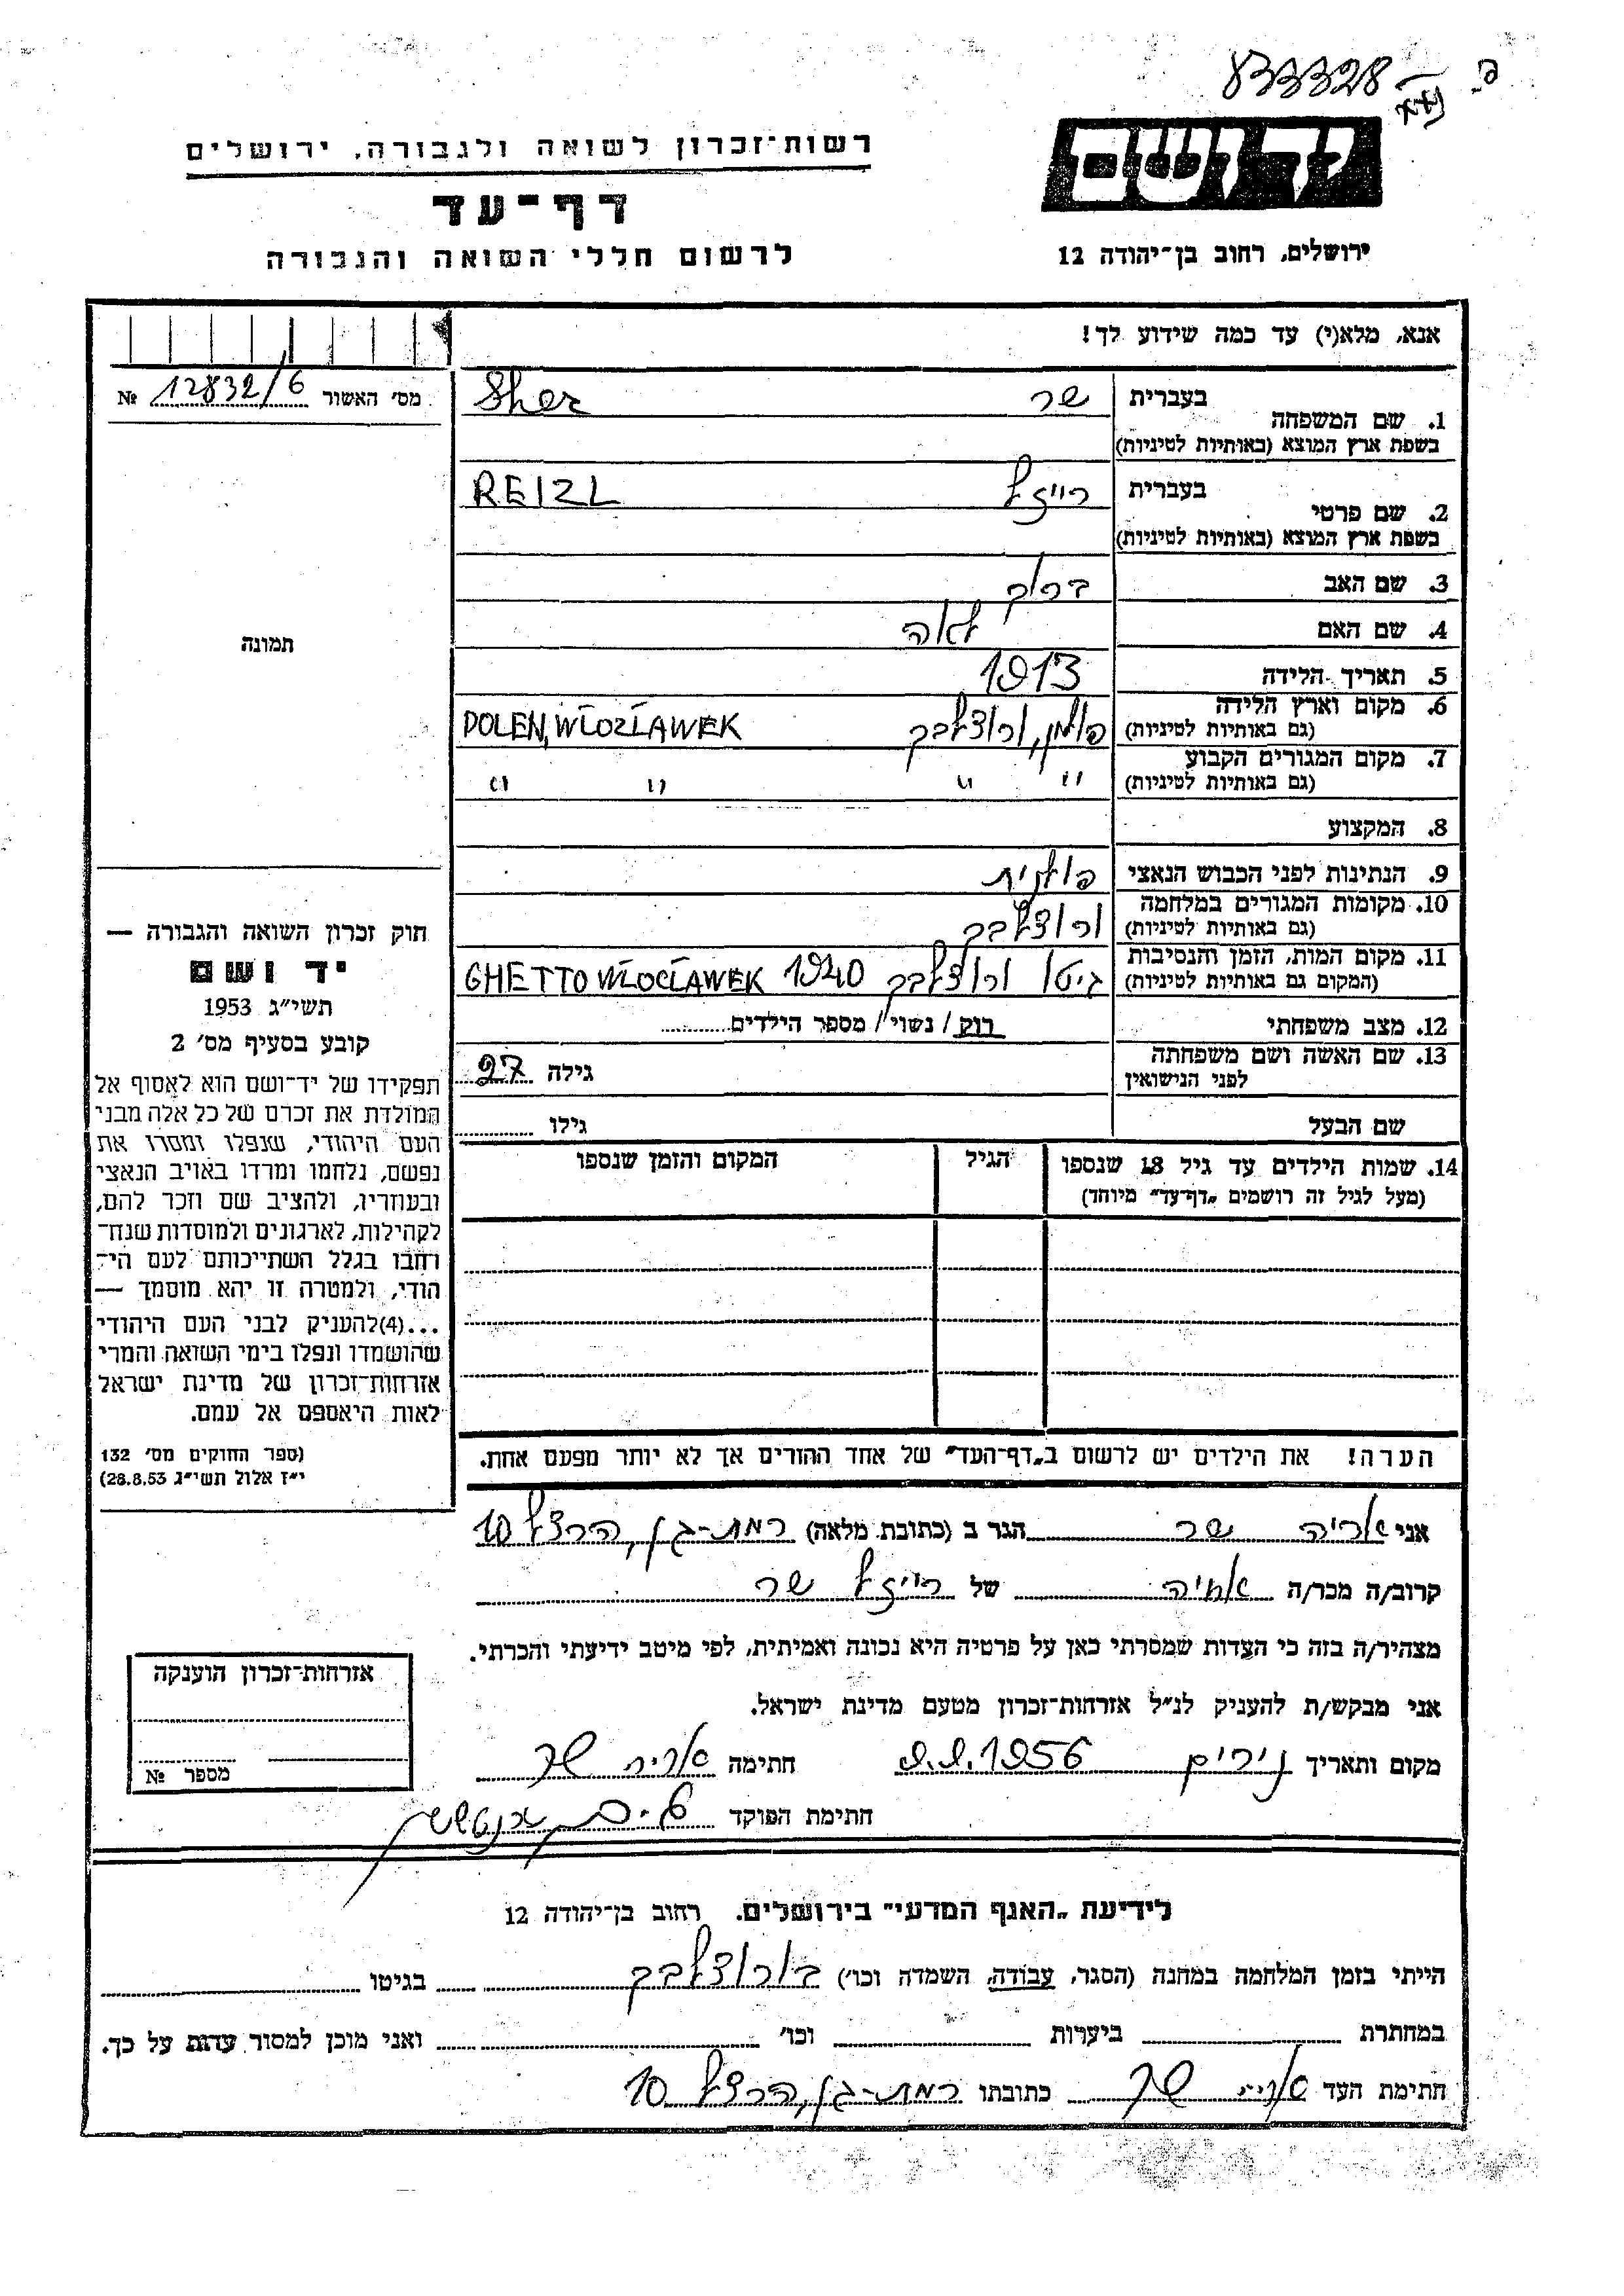 833328
יד ושם
ירושלים, רחוב בן-יהודה 12
רשות-זכרון לשואה ולגבורה, ירושלים
דף-עד
לרשום חללי השואה והגבורה
אנא, מלא(י) עד כמה שידוע לך!
מס' האשור 12832/6 №
תמונה
1. שם המשפחה בעברית שר Sher
בשפת ארץ המוצא (באותיות לטיניות)
2. שם פרטי בעברית רייזל REIZL
בשפת ארץ המוצא (באותיות לטיניות)
3. שם האב ברוך
4. שם האם לאה
5. תאריך הלידה 1913
6. מקום וארץ הלידה פולין, ולוצלבק POLEN, WŁOZŁAWEK
(גם באותיות לטיניות)
7. מקום המגורים הקבוע " " " "
(גם באותיות לטיניות)
8. המקצוע
9. הנתינות לפני הכבוש הנאצי פולנית
10. מקומות המגורים במלחמה ולוצלבק
(גם באותיות לטיניות)
11. מקום המות, הזמן והנסיבות גיטו ולוצלבק 1940 GHETTO WŁOCŁAWEK
(המקום גם באותיות לטיניות)
12. מצב משפחתי רוק / נשוי / מספר הילדים
13. שם האשה ושם משפחתה גילה 27
לפני הנישואין
שם הבעל גילו
14. שמות הילדים עד גיל 18 שנספו הגיל המקום והזמן שנספו
(מעל לגיל זה רושמים „דף-עד" מיוחד)
חוק זכרון השואה והגבורה —
יד ושם
תשי"ג 1953
קובע בסעיף מס' 2
תפקידו של יד-ושם הוא לאסוף אל
המולדת את זכרם של כל אלה מבני
העם היהודי, שנפלו ומסרו את
נפשם, נלחמו ומרדו באויב הנאצי
ובעוזריו, ולהציב שם וזכר להם,
לקהילות, לארגונים ולמוסדות שנח-
רבו בגלל השתייכותם לעם הי-
הודי, ולמטרה זו יהא מוסמך —
...(4)להעניק לבני העם היהודי
שהושמדו ונפלו בימי השואה והמרי
אזרחות-זכרון של מדינת ישראל
לאות היאספם אל עמם.
(ספר החוקים מס' 132
י"ז אלול תשי"ג 28.8.53)
הערה! את הילדים יש לרשום ב„דף-העד" של אחד ההורים אך לא יותר מפעם אחת.
אני אריה שר הגר ב (כתובת מלאה) רמת-גן, הרצל 10
קרוב/ה מכר/ה אחיה של רייזל שר
מצהיר/ה בזה כי העדות שמסרתי כאן על פרטיה היא נכונה ואמיתית, לפי מיטב ידיעתי והכרתי.
אני מבקש/ת להעניק לנ"ל אזרחות-זכרון מטעם מדינת ישראל.
מקום ותאריך נירים 9.9.1956 חתימה אריה שר
חתימת הפוקד
אזרחות-זכרון הוענקה
מספר №
לידיעת „האגף המדעי" בירושלים. רחוב בן-יהודה 12
הייתי בזמן המלחמה במחנה (הסגר, עבודה, השמדה וכו') בולוצלבק בגיטו
במחתרת ביערות וכו' ואני מוכן למסור עדות על כך.
חתימת העד אריה שר כתובתו רמת-גן, הרצל 10